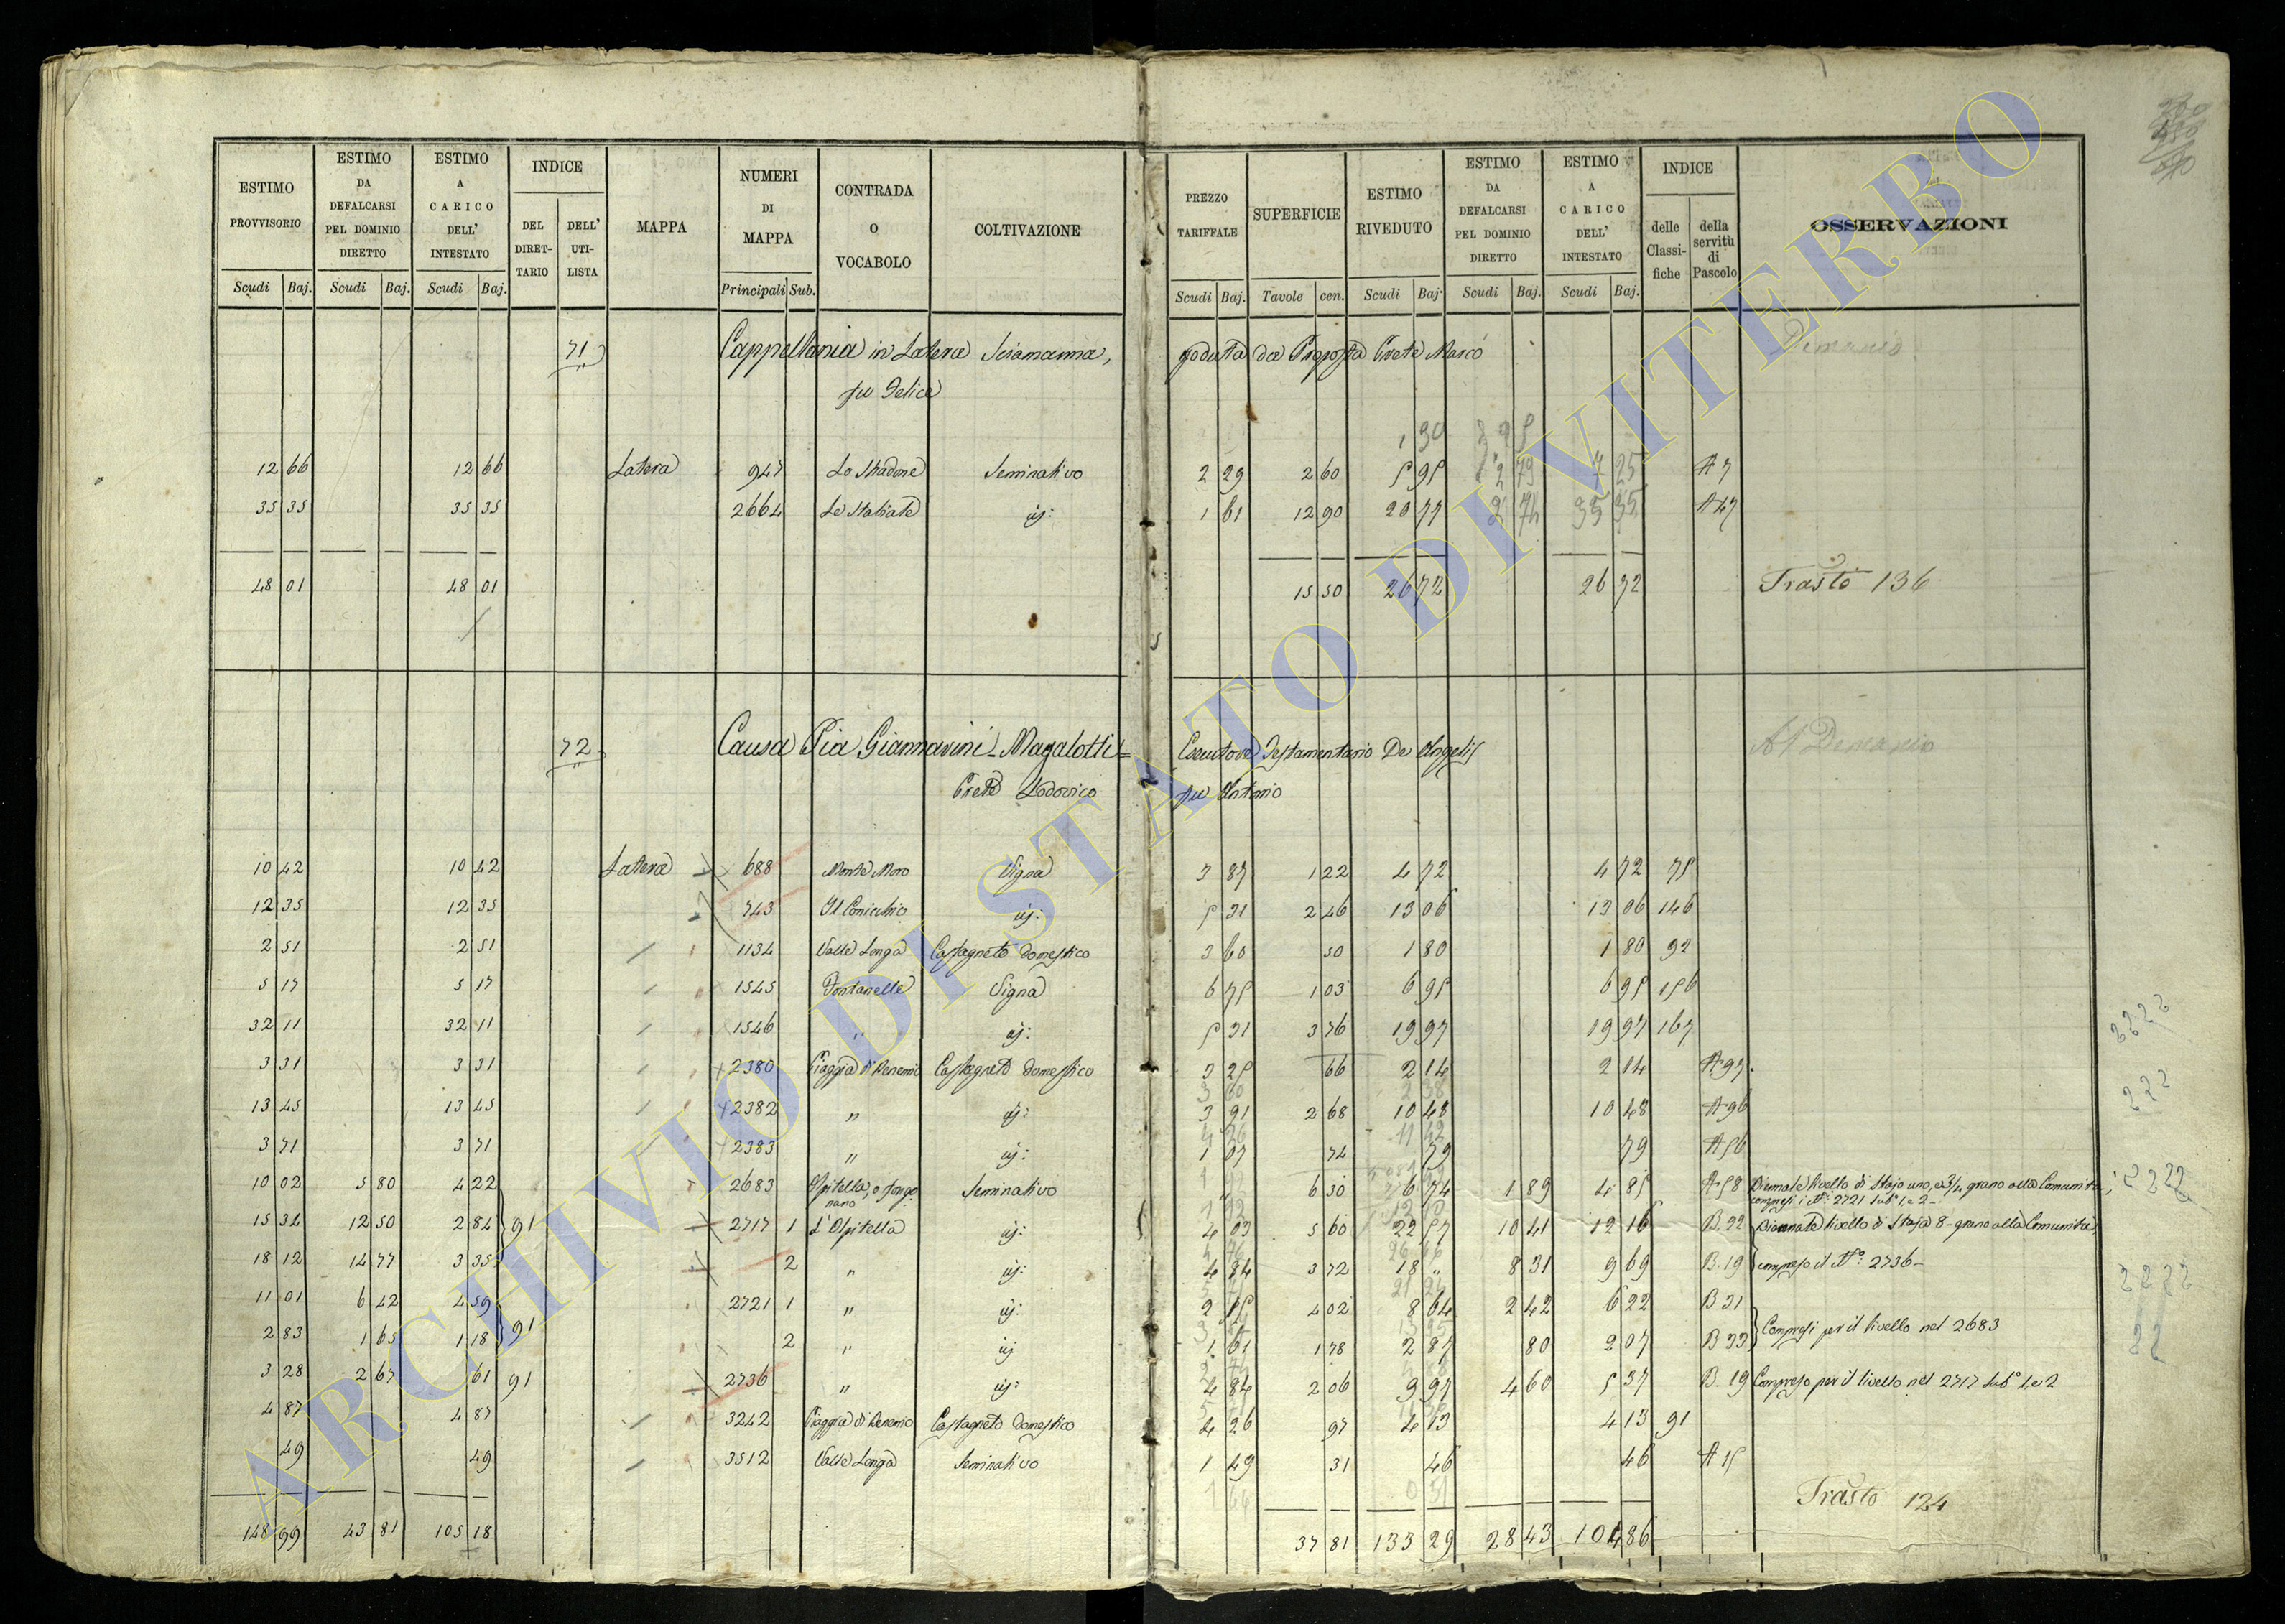 ESTIMO PROVVISORIO | ESTIMO DA DEFALCARSI PEL DOMINIO DIRETTO | ESTIMO A CARICO DELL' INTESTATO | INDICE | MAPPA | NUMERI DI MAPPA | CONTRADA O VOCABOLO | COLTIVAZIONE | PREZZO TARIFFALE | SUPERFICIE | ESTIMO RIVEDUTO | ESTIMO DA DEFALCARSI PEL DOMINIO DIRETTO | ESTIMO A CARICO DELL' INTESTATO | INDICE | OSSERVAZIONI
DEL DIRET-TARIO | DELL' UTI-LISTA | delle Classi-fiche | della servitù di Pascolo
Scudi | Baj. | Scudi | Baj. | Scudi | Baj. | Principali | Sub. | Scudi | Baj. | Tavole | cen. | Scudi | Baj. | Scudi | Baj. | Scudi | Baj.
71 Cappellania in Latera Sciamanna, goduta da Prete Marco Demanio
fu Felice
1 30
12 66 12 66 Latera 947 Lo Stradone Seminativo 2 29 2 60 5 95 2 79 7 25 A 7
35 35 35 35 2664 Le Stallate id: 1 61 12 90 20 77 2 74 35 35 A 47
48 01 48 01 15 50 26 72 26 72 Trasto 136
72 Causa Pia Giannarini-Magalotti= Esecutore Testamentario De Angelis Al Demanio
Prete Lodovico fu Antonio
10 42 10 42 Latera 688 Monte Moro Vigna 3 87 1 22 4 72 4 72 75
12 35 12 35 743 Il Conicchio id: 5 31 2 46 13 06 13 06 146
2 51 2 51 1134 Valle Longa Castagneto domestico 3 60 50 1 80 1 80 92
5 17 5 17 1545 Fontanelle Vigna 6 75 1 03 6 95 6 95 156
32 11 32 11 1546 " id: 5 31 3 76 19 97 19 97 167
3 31 3 31 2380 Piaggia di Castagneto domestico 3 25 66 2 14 2 14 A 97
13 45 13 45 2382 " id: 3 91 2 68 10 48 10 48 A 96
3 71 3 71 2383 " id: 1 07 74 79 79 A 56
10 02 5 80 4 22 2683 Ospitella, o Seminativo 6 30 6 74 1 89 4 85 A 58 Biennale livello di Stajo uno, e 3/4 grano alla Comunità,
compresi i N.i 2721 sub.i 1, e 2-
15 34 12 50 2 84 91 2717 1 L'Ospitella id: 4 03 5 60 22 57 10 41 12 16 B. 22 Biennale livello di Staja 8- grano alla Comunità,
18 12 14 77 3 35 2 " id: 4 84 3 72 18 " 8 31 9 69 B. 19 compreso il N.o: 2736-
11 01 6 42 4 59 2721 1 " id: 2 15 4 02 8 64 2 42 6 22 B 31
2 83 1 65 1 18 91 2 " id 1 61 1 78 2 87 80 2 07 B 33 Compresi per il livello nel 2683
3 28 2 67 61 91 2736 " id: 4 84 2 06 9 97 4 60 5 37 B. 19 Compreso per il livello nel 2717 sub.i 1, e 2
4 87 4 87 3242 Piaggia di Castagneto domestico 4 26 97 4 13 4 13 91
49 49 3512 Valle Longa Seminativo 1 49 31 46 46 A 15
Trasto 124
148 99 43 81 105 18 37 81 133 29 28 43 104 86
ARCHIVIO DI STATO DI VITERBO